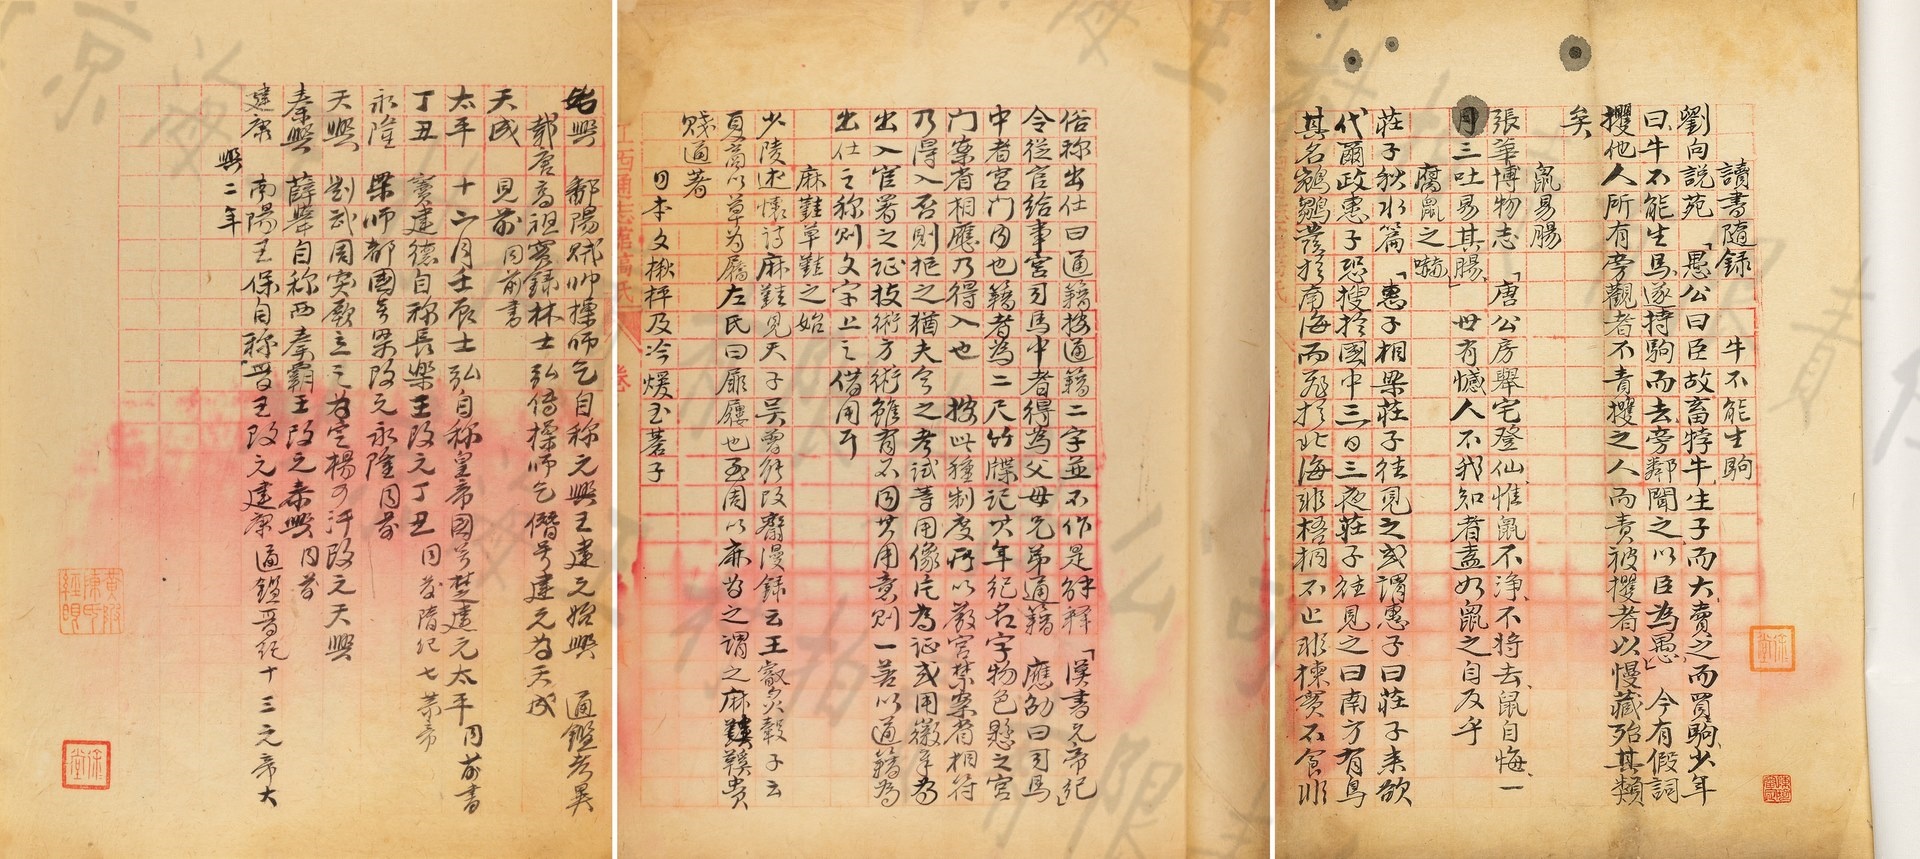 讀書隨錄　牛不能生駒
劉向說苑「愚公曰臣故畜牸牛生子而大賣之而買駒少年
曰牛不能生馬遂持駒而去旁鄰聞之以臣為愚」今有假詞
攫他人所有旁觀者不責攫之人而責被攫者以慢藏殆其類
矣
鼠易腸
張華博物志「唐公房舉宅登仙惟鼠不淨不將去鼠自悔一
月三吐易其腸」世有憾人不我知者盍如鼠之自反乎
腐鼠之嚇
莊子秋水篇「惠子相梁莊子往見之或謂惠子曰莊子来欲
代爾政惠子恐搜於國中三日三夜莊子往見之曰南方有鳥
其名鵷鶵發於南海而飛於北海非梧桐不止非楝實不食非
俗称出仕曰通籍按通籍二字並不作是解释「漢書元帝紀」
令從官給事宮司馬中者得為父母兄弟通籍　應劭曰司馬
中者宮门內也籍者為二尺竹牒記其年紀名字物色懸之宮
门案省相應乃得入也　按此種制度所以嚴宮禁案省相符
乃得入否則拒之猶夫今之考試等用像片為证或用徽章為
出入官署之证技術方術雖有不同其用意則一若以通籍為
出仕之称則文字上之借用耳
麻鞋草鞋之始
少陵述懷詩麻鞋見天子吴曾能改齋漫録云王叡炙轂子云
夏商以草為屩左氏曰扉屨也至周以麻为之謂之麻鞋貴
賤通著
日本文楸枰及冷煖玉碁子
始興　鄱陽贼帅操师乞自称元興王建元始興　通鑑考異
載唐高祖實録林士弘傳操师乞僭号建元为天成
天成　見前　同前書
太平　十二月壬辰士弘自称皇帝國号楚建元太平　同前書
丁丑　竇建德自称長樂王改元丁丑　同前隋纪七恭帝
永隆　梁师都國号梁改元永隆　同前
天興　劉武周突厥立之为定楊可汗改元天興
秦興　薛舉自称西秦霸王改元秦興　同前
建康　南陽王保自称晋王改元建康　通鑑晋纪十三元帝大
興二年
江西通志館稿紙
卷